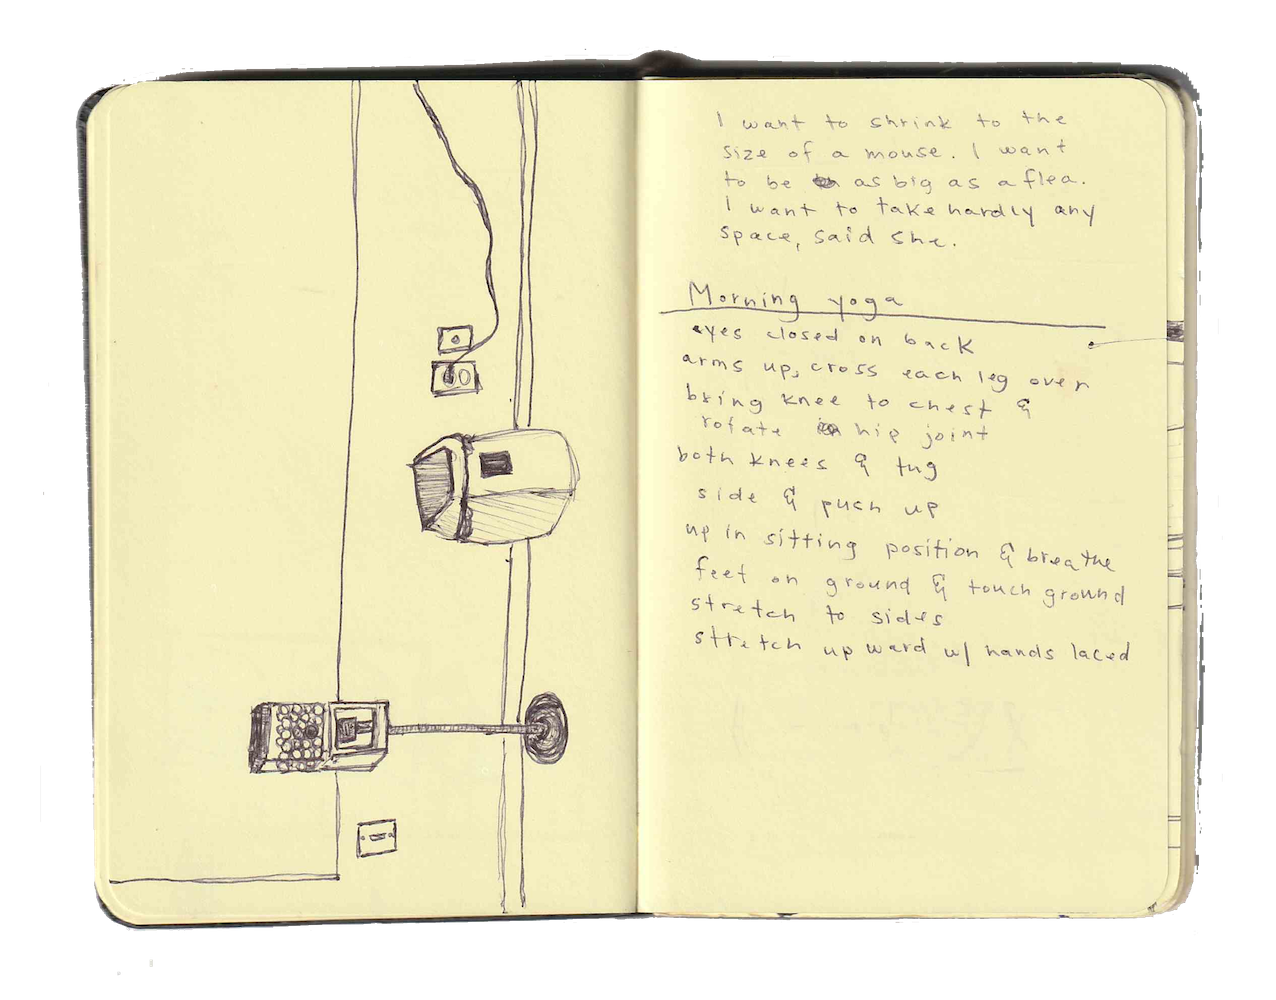 I want to shrink to the
size of a mouse. I want
to be as big as a flea.
I want to take hardly any
space, said she.
Morning yoga
eyes closed on back
arms up, cross each leg over
bring knee to chest &
rotate hip joint
both knees & tug
side & push up
up in sitting position & breathe
feet on ground & touch ground
stretch to sides
stretch upward w/ hands laced